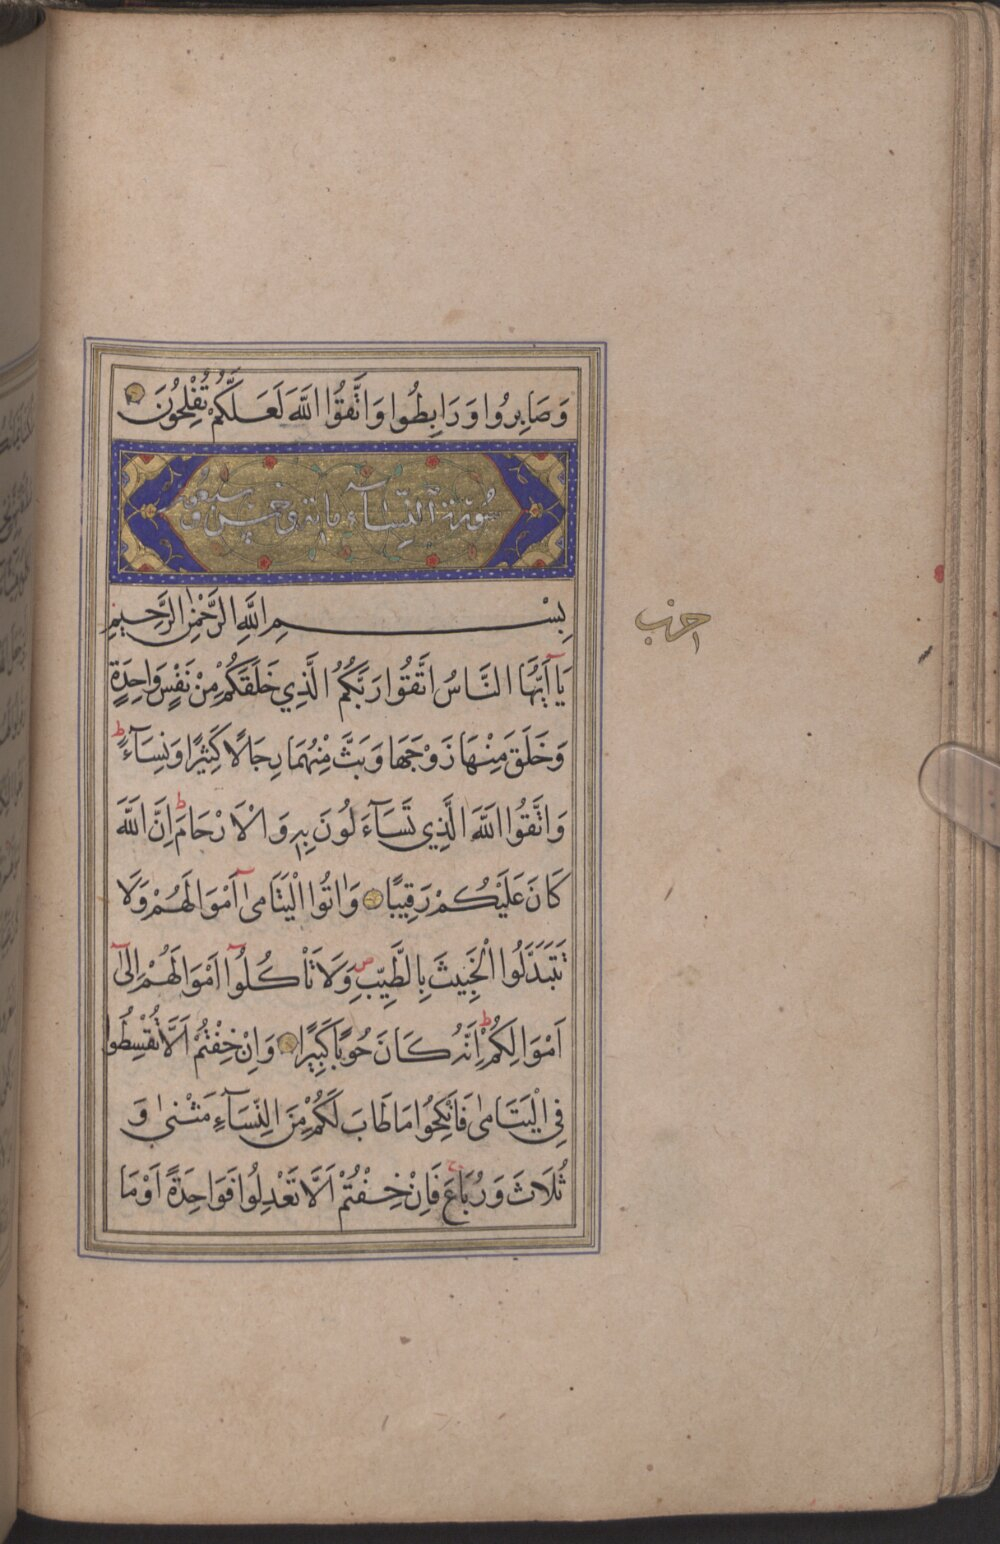 وَصَابِرُوا وَرَابِطُوا وَاتَّقُوا اللّٰهَ لَعَلَّكُمْ تُفْلِحُونَ
سُورَةُ النِّسَآءِ مائة و سبعون
بِسْمِ اللّٰهِ الرَّحْمٰنِ الرَّحِيمِ
يَآ اَيُّهَا النَّاسُ اتَّقُوا رَبَّكُمُ الَّذِي خَلَقَكُمْ مِنْ نَفْسٍ وَاحِدَةٍ
وَخَلَقَ مِنْهَا زَوْجَهَا وَبَثَّ مِنْهُمَا رِجَالًا كَثِيرًا وَنِسَآءً ط
وَاتَّقُوا اللّٰهَ الَّذِي تَسَآءَلُونَ بِهِ وَالْاَرْحَامَ ط اِنَّ اللّٰهَ
كَانَ عَلَيْكُمْ رَقِيبًا وَاٰتُوا الْيَتَامىٰٓ اَمْوَالَهُمْ وَلَا
تَتَبَدَّلُوا الْخَبِيثَ بِالطَّيِّبِ ص وَلَا تَاْكُلُوٓا اَمْوَالَهُمْ اِلىٰٓ
اَمْوَالِكُمْ ط اِنَّهُ كَانَ حُوبًا كَبِيرًا وَاِنْ خِفْتُمْ اَلَّا تُقْسِطُوا
فِي الْيَتَامىٰ فَانْكِحُوا مَا طَابَ لَكُمْ مِنَ النِّسَآءِ مَثْنىٰ وَ
ثُلَاثَ وَرُبَاعَ ج فَاِنْ خِفْتُمْ اَلَّا تَعْدِلُوا فَوَاحِدَةً اَوْ مَا
حزب